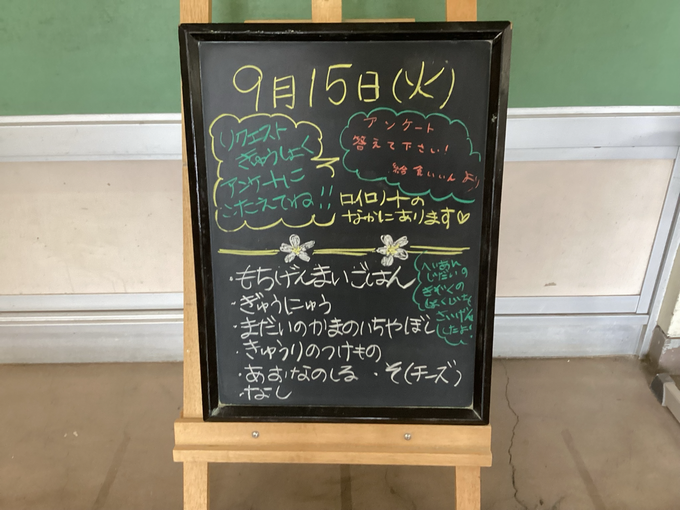 9月15日(火)
リクエスト
きゅうしょく
アンケートに
こたえてね!!
アンケート
答えて下さい!
給食いいんより
ロイロノートの
なかにあります♡
・もちげんまいごはん
・ぎゅうにゅう
・まだいのかまのいちやぼし
・きゅうりのつけもの
・あおなのしる ・そ(チーズ)
・なし
へいあん
じだいの
きぞくの
しょくじを
さいげん
したよ!